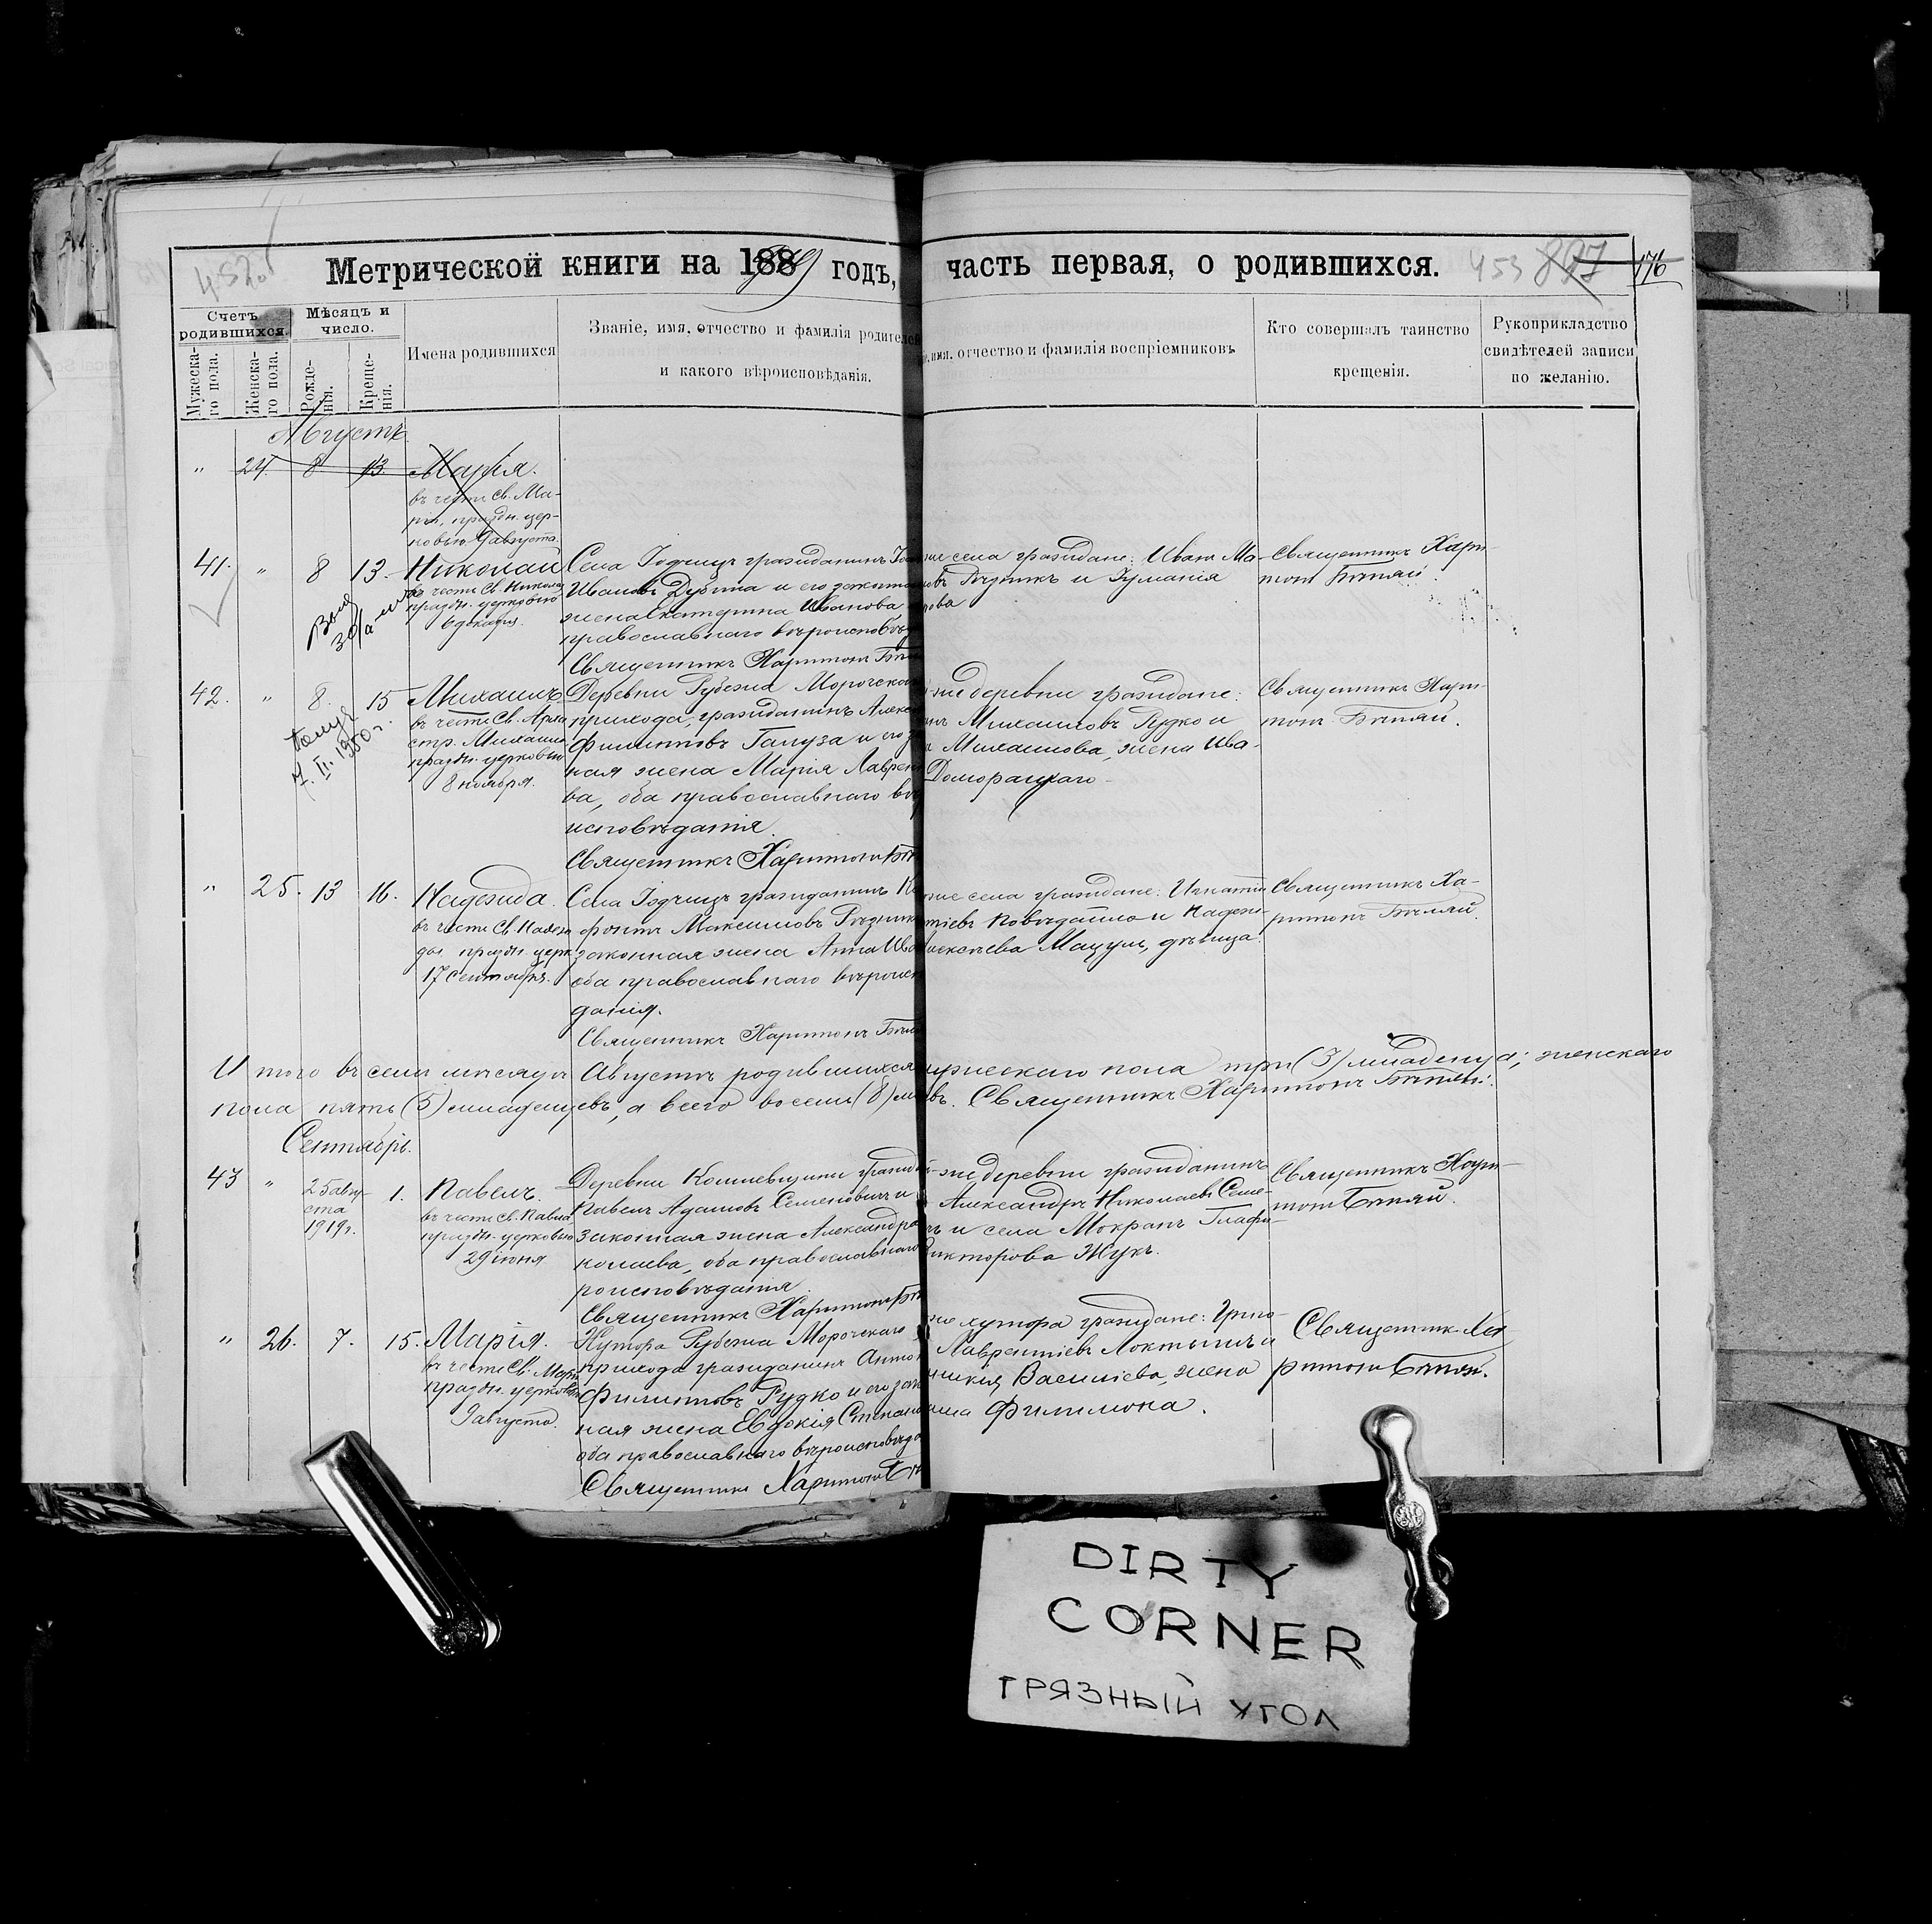 Метрической книги на 1889 годъ, часть первая, о родившихся.
452
453 897 176
Счетъ родившихся.
Мужеска-го пола.
Женска-го пола.
Мѣсяцъ и число.
Рожде-нія.
Креще-нія.
Имена родившихся
Званіе, имя, отчество и фамилія родителей
и какого вѣроисповѣданія.
имя, отчество и фамилія воспріемниковъ
Кто совершалъ таинство
крещенія.
Рукоприкладство
свидѣтелей записи
по желанію.
Августъ
" 24. 8 13. Марія.
въ честь Св. Ма-
ріи, праздн. цер-
ковью 9 августа.
41. " 8 13. Николай
въ честь Св. Никола
праздн. церковью
6 декабря.
Села граждaнинъ
Ивановъ Дубина и его законна
жена Екатерина Иванова
православнаго вѣроисповѣд
Священникъ Харитонъ
же села граждане: Иванъ Ма-
и
рова
Священникъ Хари-
тонъ Бѣляй.
42. " 8. 15 Михаилъ
въ честь Св. Арха
стр. Михаила
праздн. церковью
8 ноября.
7. II. 1950 г.
Деревни Рубежа Морочскаго
прихода, гражданинъ Алекс
Филипповъ Галуза и его з
ная жена Марія Лаврен
ва, оба православнаго вѣр
исповѣданія.
Священникъ Харитонъ Бѣ
же деревни граждане:
Михаиловъ Рудко и
Михаилова, жена Ива-
Доморацкаго
Священникъ Хари-
тонъ Бѣляй.
" 25. 13 16. Надежда.
въ честь Св. Надеж
ды праздн. церк
17 сентября.
Села гражданинъ
Максимовъ
законная жена Анна Ива
оба православнаго вѣроисп
данія.
Священникъ Харитонъ Бѣля
же села граждане: Игнатій
тіевъ и Надеж-
Алексѣева Мацуль, дѣвица.
Священникъ Ха-
ритонъ Бѣляй.
Итого въ семъ мѣсяцѣ Августѣ родившихся мужескаго пола три (3) младенца; женскаго
пола пять (5) младенцевъ, а всего восемь (8) мл въ. Священникъ Харитонъ Бѣляй.
Сентябрь.
43 " 25 авгу-
ста
1919 г.
1. Павелъ.
въ честь Св. Павла
праздн. церковью
29 іюня
Деревни гражда
Павелъ Адамовъ Семеновичъ и
законная жена Александра
колаева, оба православнаго
роисповѣданія.
Священникъ Харитонъ Бѣ
же деревни гражданинъ
Александръ Николаевъ Семе-
чъ и села Мокранъ Глафи-
Викторова Жукъ.
Священникъ Хари-
тонъ Бѣляй.
" 26. 7. 15. Марія.
въ честь Св. Маріи
праздн. церковью
9 августа.
Хутора Рубежа Морочскаго
прихода гражданинъ Антон
Филипповъ Рудко и его зак
ная жена Евдокія Степано
оба православнаго вѣроисповѣда
Священникъ Харитонъ Бѣ
же хутора граждане: Григо-
Лаврентіевъ Локтышъ и
Василіева, жена
Филимона.
Священникъ Ха
ритонъ Бѣляй.
DIRTY
CORNER
ГРЯЗНЫЙ УГОЛ